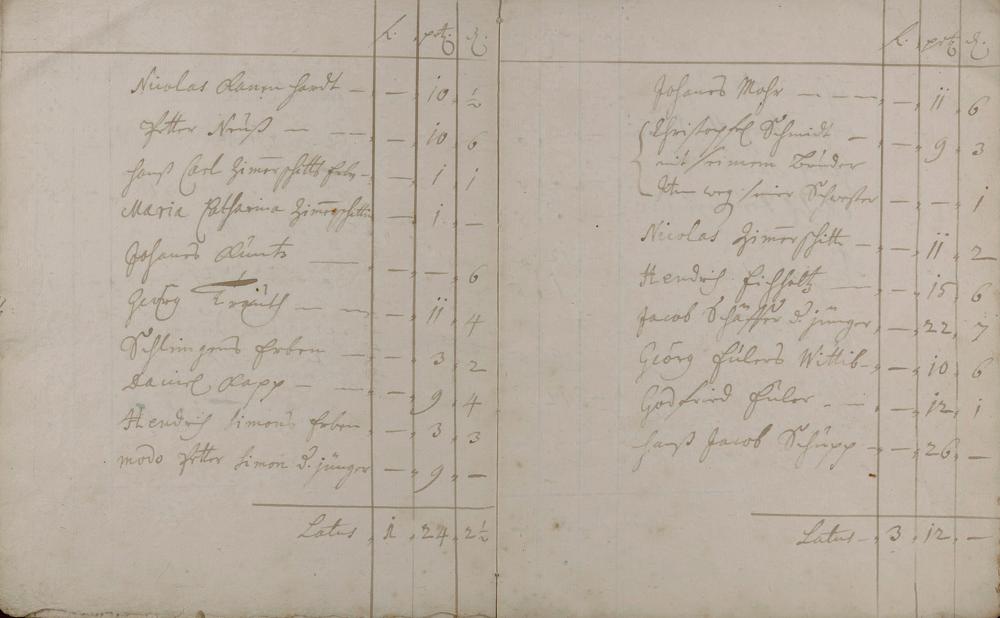 Nicolas — — 10 ½
Petter Neuß — — — 10 6
Hanß Carl Zimerschitts Erben — — 1 1
Maria Catharina Zimerschittin — 1 —
Johanes Küntz — — — 6
Georg Treüth — — — 11 4
Schlingens Erben — — 3 2
Daniel Rapp — — — 9 4
Hendrich Simons Erben — 3 3
modo Petter Simon d. jünger — 9 —
Latus 1 24 2½
Johanes Mohr — — — — 11 6
Christoffel Schmidt — — 9 3
mit seinem Bruder
Item weg. seiner Schwester — — 1
Nicolas Zimerschitt — — 11 2
Hendrich Eichholtz — — 15 6
Jacob Schäffer d. jünger — 22 7
Georg Eülers Wittib — — 10 6
Godfried Eüler — — — 12 1
Hanß Jacob Schüpp — — 26 —
Latus — 3 12 —